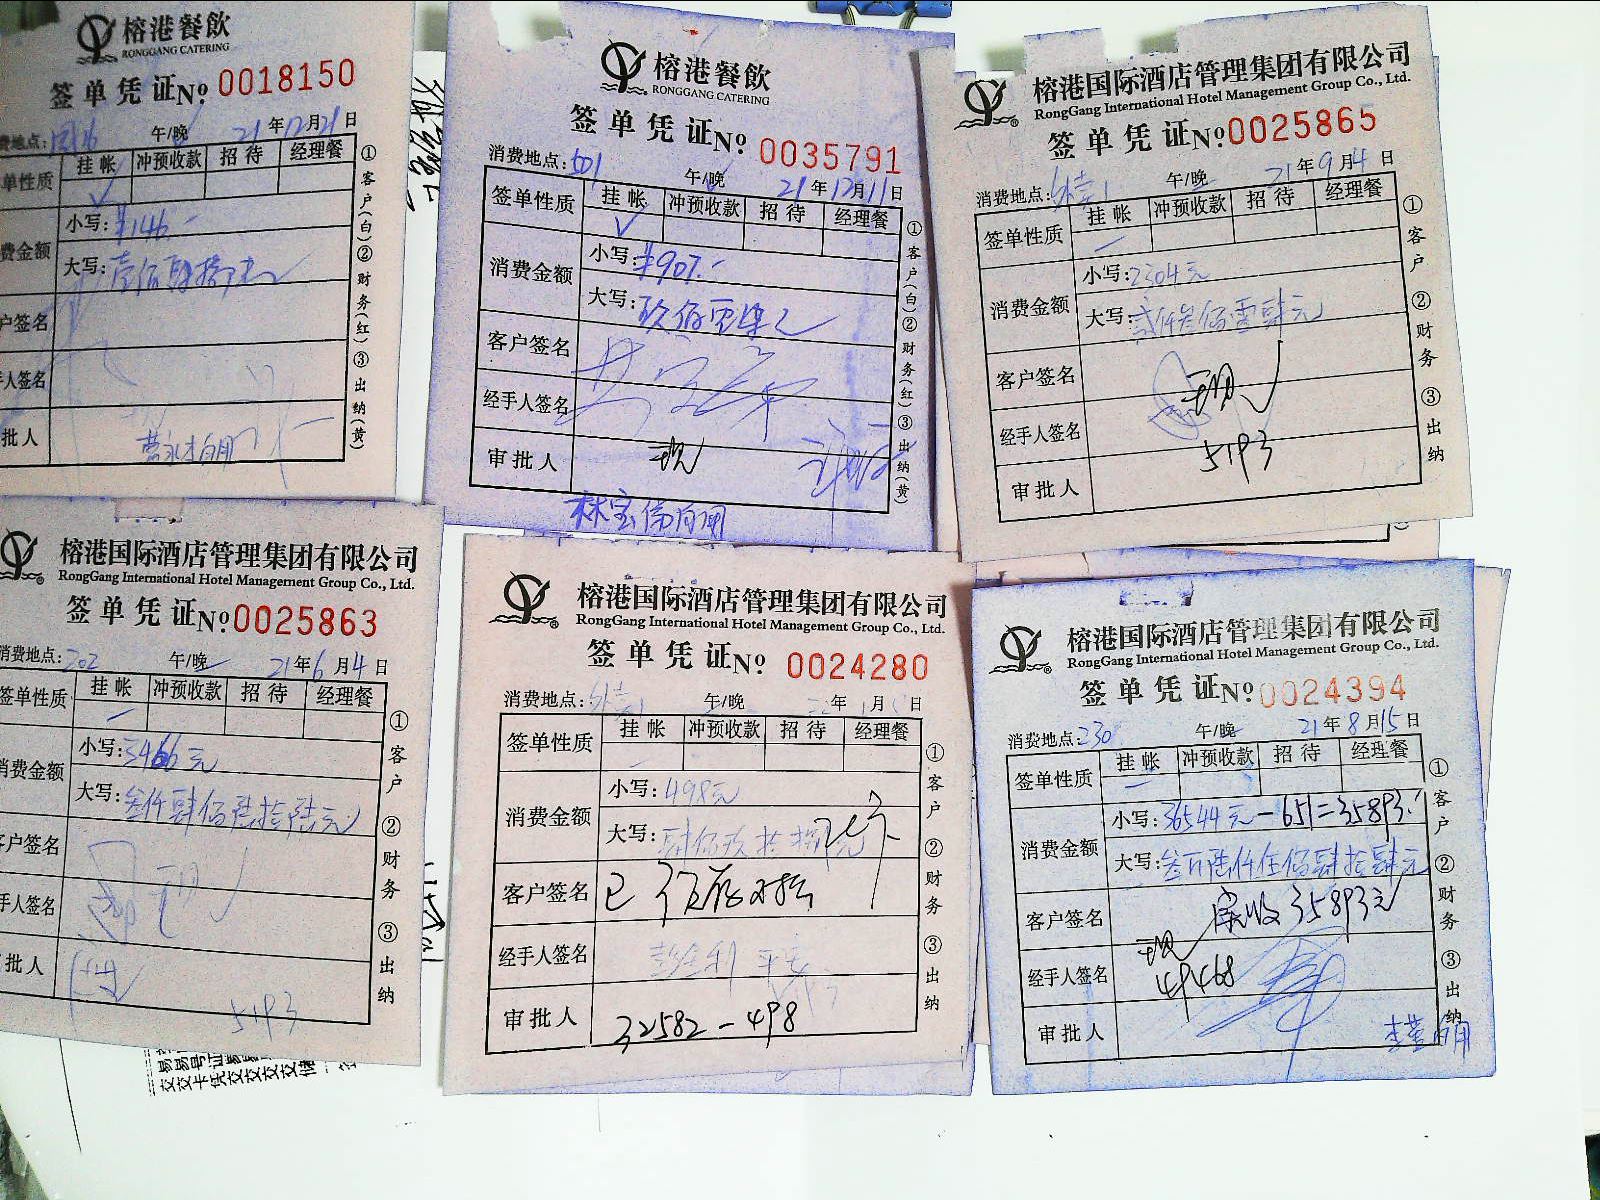 榕港餐飲
RONGGANG CATERING
签单凭证No 0018150
费地点: 午/晚 21年12月21日
单性质 挂帐 冲预收款 招待 经理餐
费金额 小写:¥146.-
大写:壹佰肆拾
户签名
手人签名
批人
①客户(白)②财务(红)③出纳(黄)
榕港餐飲
RONGGANG CATERING
签单凭证No 0035791
消费地点:501 午/晚 21年12月11日
签单性质 挂帐 冲预收款 招待 经理餐
消费金额 小写:¥907.-
大写:玖佰零柒
客户签名
经手人签名
审批人
林宝
①客户(白)②财务(红)③出纳(黄)
榕港国际酒店管理集团有限公司
RongGang International Hotel Management Group Co., Ltd.
签单凭证No 0025865
消费地点: 午/晚 21年9月4日
签单性质 挂帐 冲预收款 招待 经理餐
消费金额 小写:2304元
大写:贰仟叁佰零肆元
客户签名
经手人签名 5193
审批人
①客户 ②财务 ③出纳
榕港国际酒店管理集团有限公司
RongGang International Hotel Management Group Co., Ltd.
签单凭证No 0025863
消费地点:202 午/晚 21年6月4日
签单性质 挂帐 冲预收款 招待 经理餐
消费金额 小写:3466元
大写:叁仟肆佰陆拾陆元
客户签名
手人签名
批人 5193
①客户 ②财务 ③出纳
榕港国际酒店管理集团有限公司
RongGang International Hotel Management Group Co., Ltd.
签单凭证No 0024280
消费地点: 午/晚 年1月 日
签单性质 挂帐 冲预收款 招待 经理餐
消费金额 小写:498元
大写:肆佰玖拾捌元
客户签名 已
经手人签名
审批人 32582-498
①客户 ②财务 ③出纳
榕港国际酒店管理集团有限公司
RongGang International Hotel Management Group Co., Ltd.
签单凭证No 0024394
消费地点:230 午/晚 21年8月15日
签单性质 挂帐 冲预收款 招待 经理餐
消费金额 小写:36544元-651=35893.
大写:叁万陆仟伍佰肆拾肆元
客户签名 实收35893元
经手人签名 49468
审批人
①客户 ②财务 ③出纳